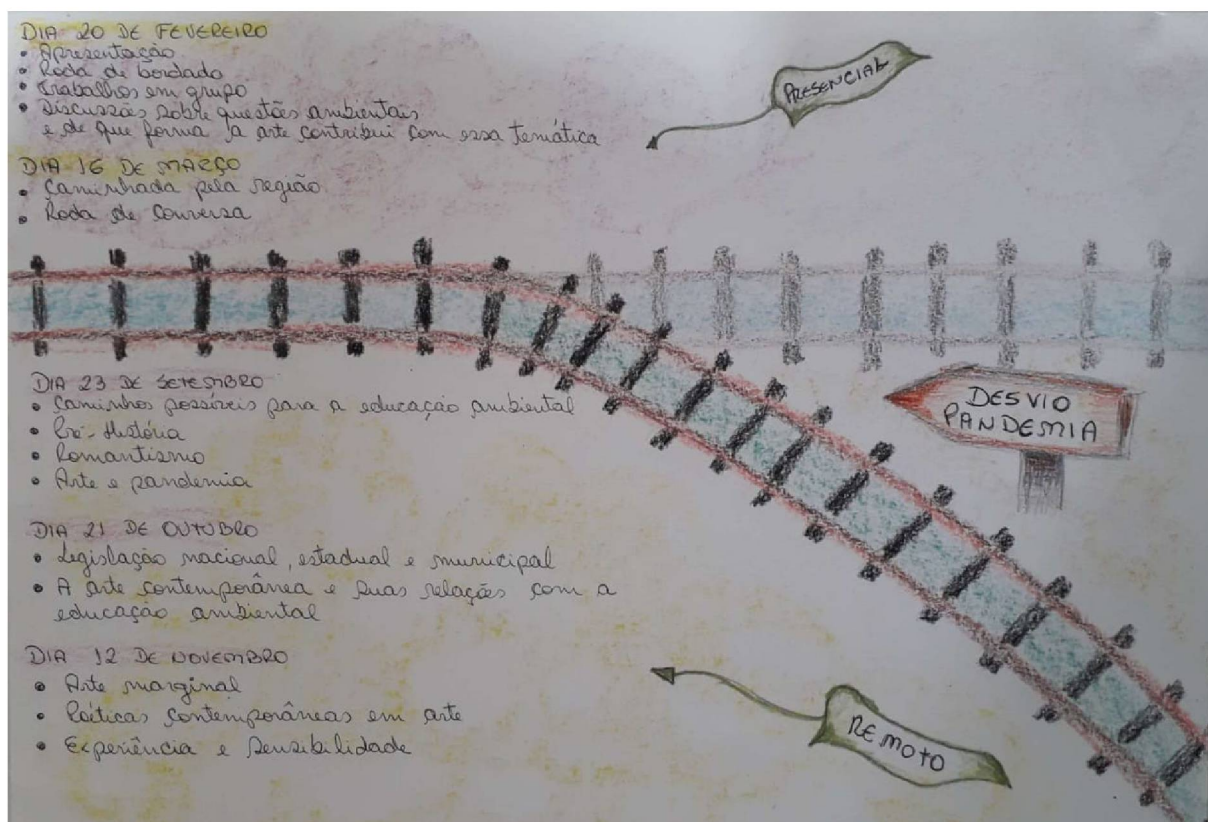 DIA 20 DE FEVEREIRO
• Apresentação
• Roda de bordado
• Trabalhos em grupo
• Discussões sobre questões ambientais
e de que forma a arte contribui com essa temática
PRESENCIAL
DIA 16 DE MARÇO
• Caminhada pela região
• Roda de conversa
DIA 23 DE SETEMBRO
• Caminhos possíveis para a educação ambiental
• Pré-História
• Romantismo
• Arte e pandemia
DESVIO
PANDEMIA
DIA 21 DE OUTUBRO
• Legislação nacional, estadual e municipal
• A arte contemporânea e suas relações com a
educação ambiental
DIA 12 DE NOVEMBRO
• Arte marginal
• Poéticas contemporâneas em arte
• Experiência e sensibilidade
REMOTO